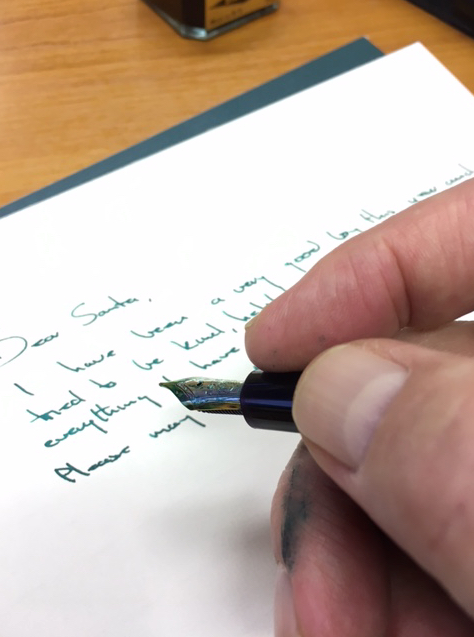 Dear Santa,
I have been a very good boy this year and
tried to be kind,
everything I have
Please may